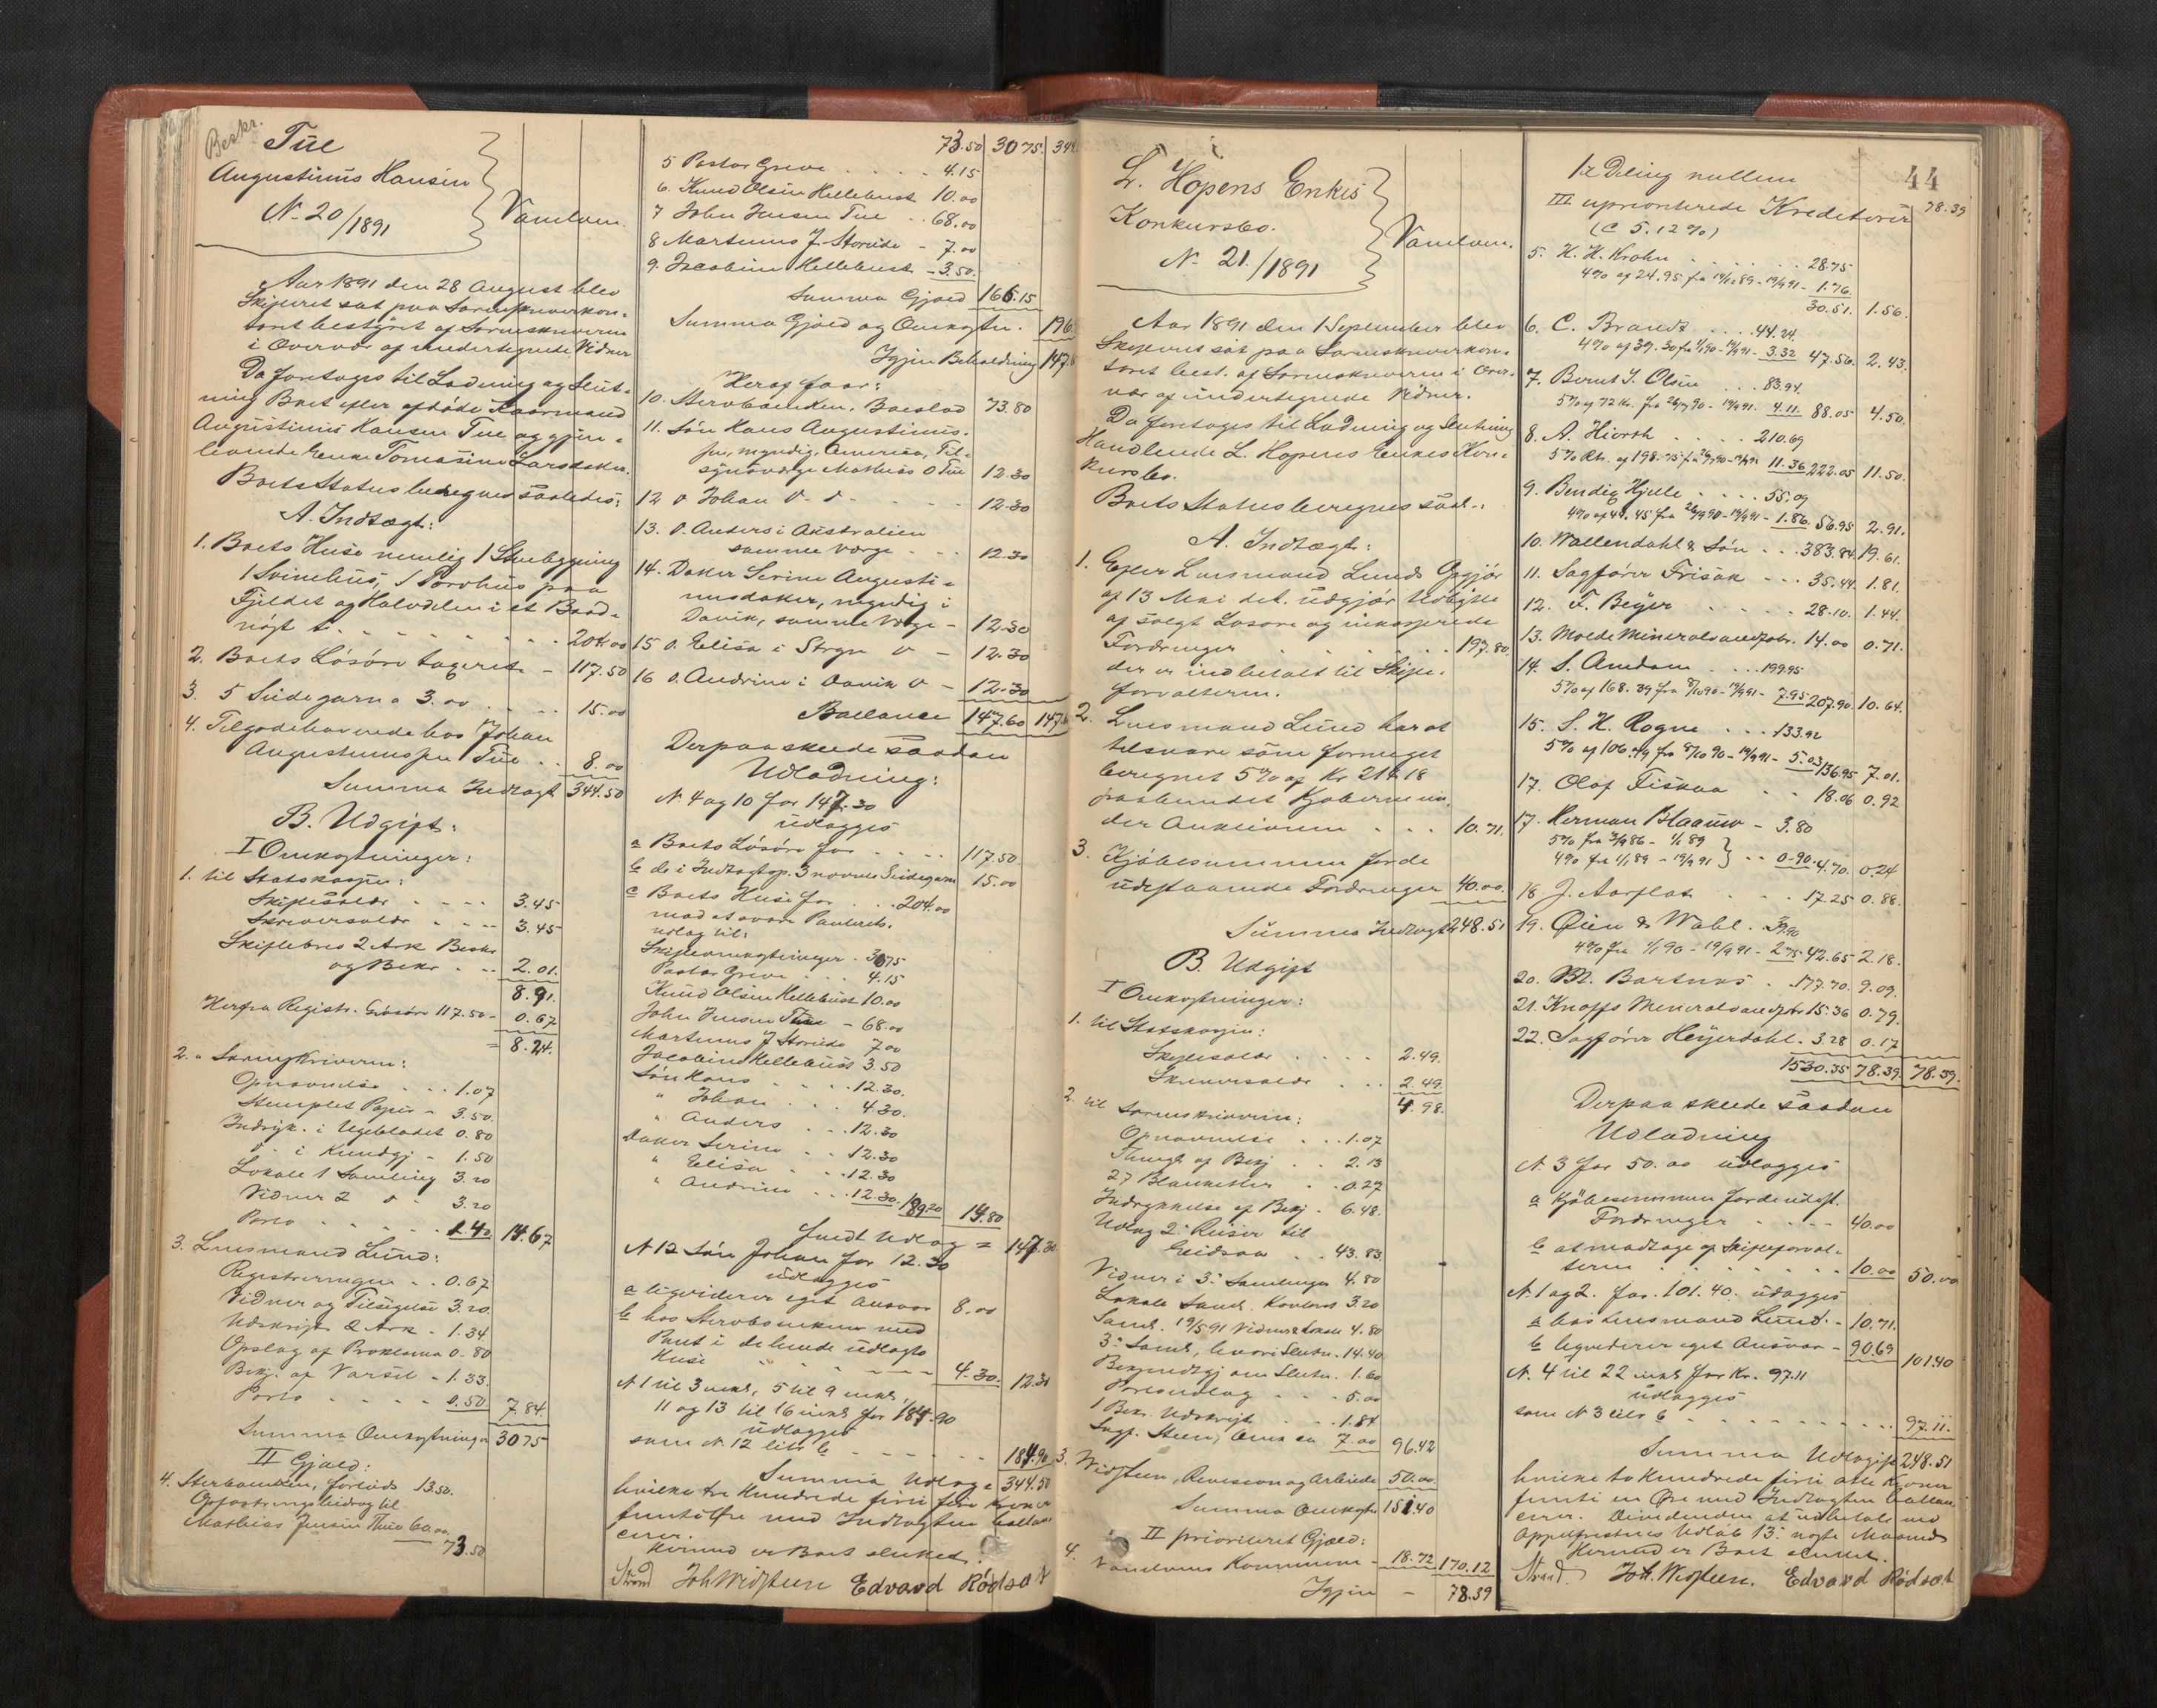 Beskr.
Tue
Augustinus Hansen
N. 20/1891
Vanelven
Aar 1891 den 28 August blev
Skifteret sat paa Sorenskriverkon-
toret bestyret af Sorenskriveren
i Overvær af undertegnede Vidner
Da foretoges til Lodning og Slut-
ning Boet efter afdøde Kaarmand
Augustinus Hansen Tue og gjen-
levende Enke Tomasine Larsdatter.
Boets Status beregnes saaledes:
A. Indtægt:
1. Boets Huse nemlig 1 Stuebygning
1 Svinehus, 1 Torvhus paa
Fjeldet og Halvdelen i et Baad-
nøgt t. 204.00
2. Boets Løsøre taxeret 117.50
3. 5 Sildegarn a 3.00 15.00
4. Tilgodehavende hos Johan
Augustinussen Tue 8.00
Summa Indtægt 344.50
B. Udgift:
I Omkostninger:
1. til Statskassen:
Skiftesalær 3.45
Skriversalær 3.45
Skiftebrev 2 Ark Beskr
og Bekr. 2.01.
8.91.
Herfra Registr. Gebyr 117.50 - 0.67
= 8.24.
2. " Sorenskriveren:
Opnævnelse 1.07
Stemplet Papir - 3.50.
Indryk. i Ugebladet 0.80
" i Kundgj - 1.50
Lokale 1 Samling 3.20
Vidner 2 d - 3.20
Porto 1.40 14.67
3. Lensmand Lund:
Registreringen 0.67
Vidner og Tilsigelse 3.20
Udskrift 2 Ark - 1.34
Opslag af Proklama 0.80
Bekj. af Varsel - 1.33.
Porto 0.50 7.84.
Summa Omkostninger 30 75
II Gjæld:
4. Sterbоenken, forlods 13.50.
Opfostringsbidrag til
Mathias Jensen Tue 60.00
73.50
73.50 30 75. 344
5 Pastor Greve 4.15
6. Knud Olsen Hellebust 10.00
7 John Jensen Tue 68.00
8 Martinus J. Storeide - 7.00
9. Jacobine Hellebust - 3.50.
Summa Gjæld 166.15
Summa Gjæld og Omkostn. 196
Igjen Beholdning 147.
Heraf faar:
10. Stervboenken. Boeslod 73.80
11. Søn Hans Augustinus-
sen, myndig, America, Til-
synsværge Mathias O Tue 12.30
12 d Johan d - d - 12.30
13. d. Anders i Australien
samme Værge 12.30
14. Datter Serine Augusti-
nusdatter, myndig i
Davik, samme Værge - 12.30
15 d. Elisa i Stryn d - 12.30
16 d. Andrine i Davik d - 12.30
Ballance 147.60 147.
Derpaa skede saadan
Udlodning:
N. 4 og 10 for 147.30
udlægges
a Boets Løsøre for 117.50
b de i Indtægtsp. 3 nævnte Sildegarn 15.00
c Boets Huse for 204.00
mod at svare Panterets.
udlæg til:
Skifteomkostninger - 30 75
Pastor Greve 4.15
Knud Olsen Hellebust 10.00
John Jensen Tue - 68.00
Martinus J Storeide 7.00
Jacobine Hellebust 3.50
Søn Hans 12.30.
" Johan 4.30.
" Anders 12.30
Datter Serine 12.30
" Elisa 12.30
" Andrine 12.30. 189.20 14.80
fuldt Udlæg = 147.30
N 12 Søn Johan for 12.30
udlægges
a liqviderer eget Ansvar 8.00
b hos Stervboenken med
Pant i de hende udlagte
Huse 4.30. 12.30
N 1 til 3 inkl, 5 til 9 inkl,
11 og 13 til 16 inkl for 184.90
udlægges
som N. 12 litr b 184.90
Summa Udlæg = 344.50
hvilke tre Hundrede firti fire Kroner
femti Øre med Indtægten ballan
cerer.
Hermed er Boet sluttet.
Strand Joh Widsteen Edvard Rødsæt
44
L. Hopens Enkes
Konkursbo.
N. 21/1891
Vanelven.
Aar 1891 den 1 September blev
Skifteret sat paa Sorenskriverkon-
toret best. af Sorenskriveren i Over-
vær af undertegnede Vidner.
Da foretoges til Lodning og Slutning
Handlende L. Hopens Enkes Kon-
kursbo.
Boets Status beregnes saal.:
A. Indtægt:
1. Efter Lensmand Lunds Opgjør
af 13 Mai det. udgjør Udbytte
af solgt Løsøre og inkasserede
Fordringer 197.80
der er indbetalt til Skifte-
forvalteren.
2. Lensmand Lund har at
tilsvare som forrentet
beregnet 5% af Kr 214.18
paabundet Kjøberne un-
der Auctionen 10.71.
3. Kjøbesummen for de
udestaaende Fordringer 40.00.
Summa Indtægt 248.51
B. Udgift
I Omkostninger:
1. til Statskassen:
Skiftesalær 2.49.
Skriversalær 2.49
4.98.
2. til Sorenskriveren:
Opnævnelse 1.07
Thingl. af Bekj 2.13
27 Blanketter 0.27
Indrykkelse af Bekj. 6.48.
Udlæg 2 Reiser til
Eidsaa 43.83.
Vidner i 3 Samlinger 4.80
Lokale Saml. Kontoret 3.20
Saml. 19/5 91 Vidner & Lokale 4.80
3 Saml, hvori Slutn. 14.40
Bekjendtgj om Slutn. 1.60
Portoudlæg 5.00
1 Bekr. Udskrift 1.84
Sagf. Steen, 7.00 96.42
3. Widsteen, Revision og Arbeide 50.00
Summa Omkostn 151.40
II prioriteret Gjæld:
4. Vanelvens Kommune - 18.72 170.12
Igjen - 78.39
1ste Deling nullem
78.39
III uprioriterede Kreditorer
(C 5.12 %)
5. H. H. Krohn 28.75
4% af 24.95 fra 14/12 89 - 19/9 91 - 1.76.
30.51. 1.56.
6. C. Brandt 44.24.
4% af 39.30 fra 1/1 90 - 19/9 91 - 3.32 47.56. 2.43.
7. Bernt S. Olsen 83.94.
5% af 72 Kr. fra 26/7 90 - 19/9 91. 4.11. 88.05 4.50.
8. A. Hiorth 210.69
5% Rt. af 198.75 fra 26/7 90 - 19/9 91 11.36 222.05 11.50.
9. Bendix Hjelle 55.09
4% af 43.45 fra 26/7 90 - 19/9 91 - 1.86. 56.95 2.91.
10. Wallendahl & Søn 383.84. 19.61.
11. Sagfører Frisak 35.44. 1.81.
12. F. Beyer 28.10. 1.44.
13. Molde Mineralvandfabr. 14.00 0.71.
14. S. Amdam 199.95
5% af 168.39 fra 8/10 90 - 19/9 91 - 7.95 207.90. 10.64.
15. S. H. Rogne 133.92
5% af 106.49 fra 8/10 90 - 19/9 91 - 5.03 136.95 7.01.
17. Olaf Fiskaa 18.06 0.92
17. Herman Blaauw - 3.80
5% fra 3/9 86 - 1/1 89
4% fra 1/1 89 - 19/9 91 } 0.90. 4.70. 0.24
18. J. Aarflot 17.25 0.88.
19. Øien & Wahl. 39.90
4% fra 1/1 90 - 19/9 91 - 2.75 42.65 2.18.
20. M. Bartnes 177.70. 9.09.
21. Knoffs Mineralvandfabr 15.36 0.79.
22. Sagfører Heyerdahl. 3.28 0.17
1530.35 78.39. 78.39.
Derpaa skede saadan
Udlodning
N. 3 for 50.00 udlægges
a Kjøbesummen for de udest.
Fordringer 40.00
b at modtage af Skifteforval-
teren 10.00 50.00
N. 1 og 2. for 101.40. udlægges
a hos Lensmand Lund. 10.71.
b liqviderer eget Ansvar - 90.69 101.40
N. 4 til 22 inkl for Kr. 97.11
udlægges
som N 3 litr b 97.11.
Summa Udlægs 248.51
hvilke to Hundrede firti otte Kroner
femti en Øre med Indtægten ballan-
cerer. Dividenden at udbetale ved
Appelfristens Udløb 13 næste Maaned
Hermed er Boet sluttet.
Strand. Joh. Widsteen. Edvard Rødsæt